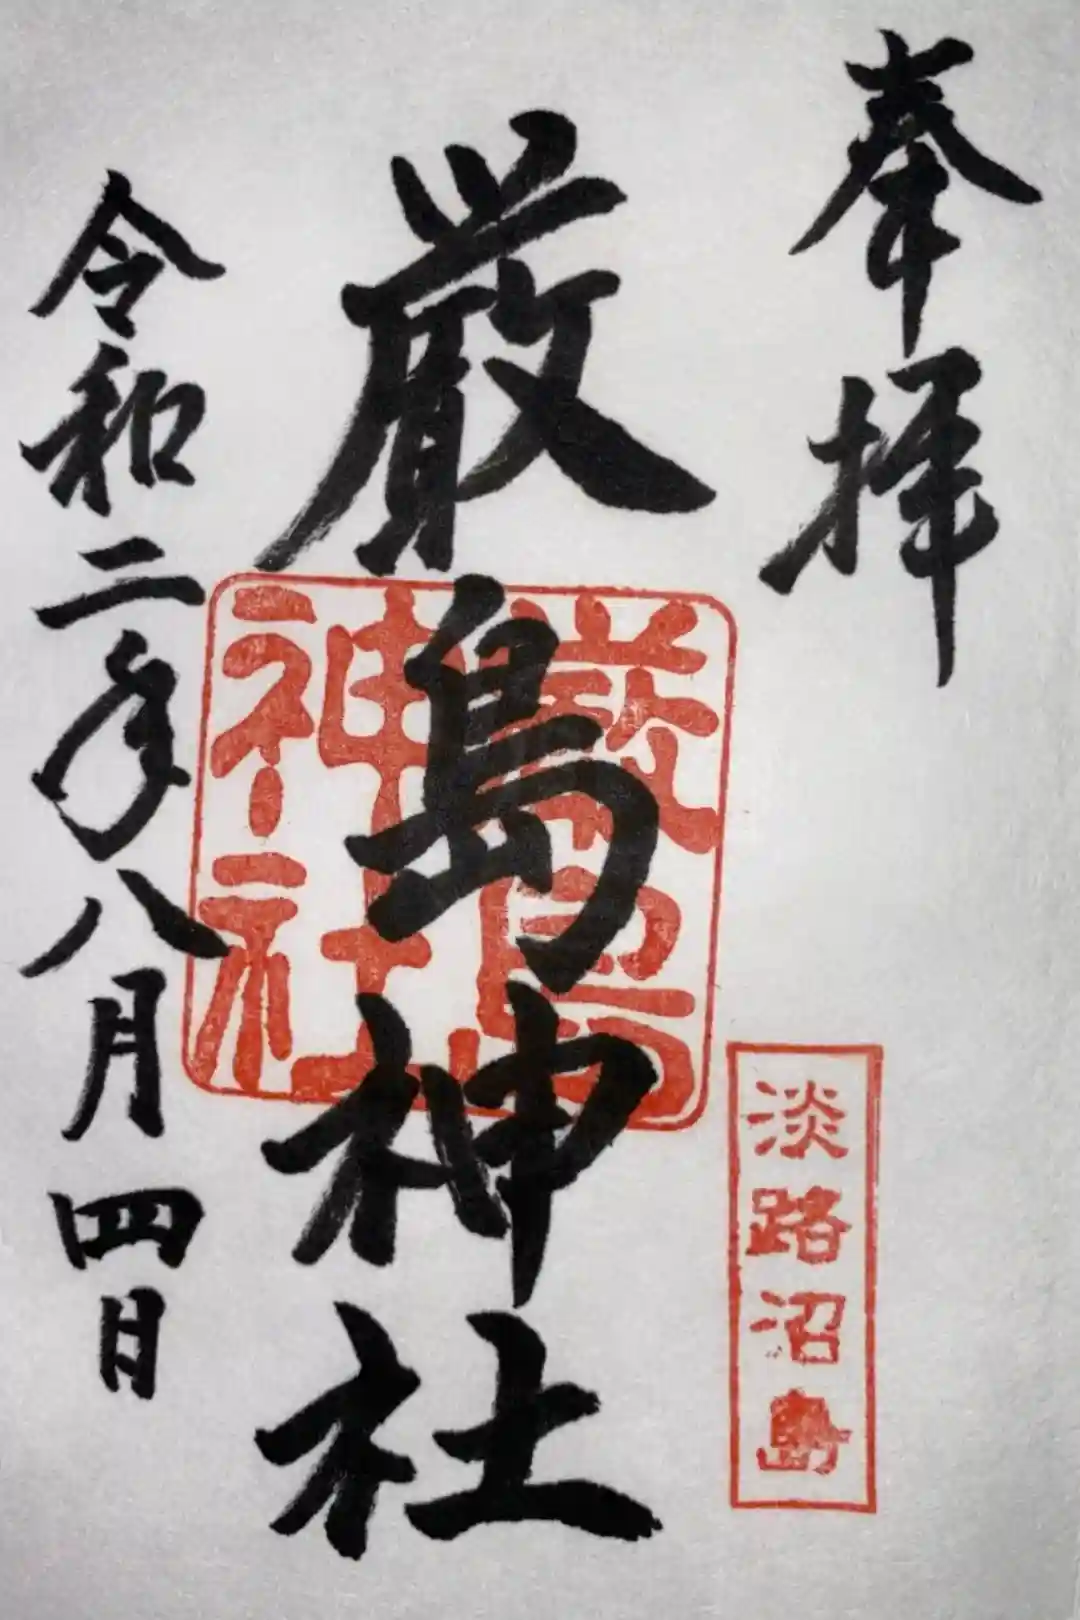 奉拝
淡路沼島
厳島神社
厳島
神社
令和二年八月四日